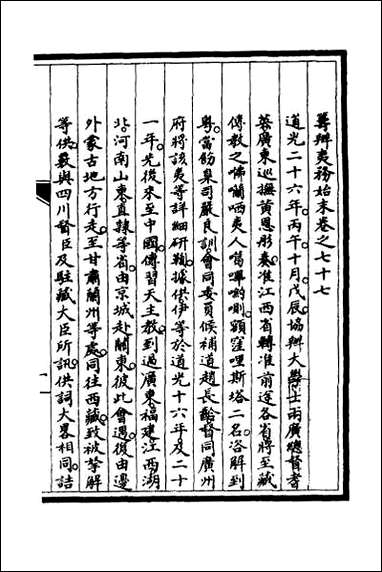 籌辦夷務始末卷之七十七
道光二十六年。丙午。十月。戊辰。協辦大學士兩廣總督耆
英廣東巡撫黃恩彤奏。准江西省轉准前途各省將至藏
傳教之咈囒哂夷人噶嗶喲則額窪哩斯塔二名。咨解到
粵。當飭臬司嚴良訓。會同委員候補道趙長齡。督同廣州
府將該夷等詳細研鞫。據供。伊等於道光十六年。及二十
一年。先後來至中國。傳習天主教。到過廣東福建江西湖
北。河南山東直隸等省。由京城赴關東。彼此會遇。後由邊
外蒙古地方行走。至甘肅蘭州等處。同往西藏。致被拏解
等供。覈與四川督臣及駐藏大臣所訊。供詞大畧相同。詰
一